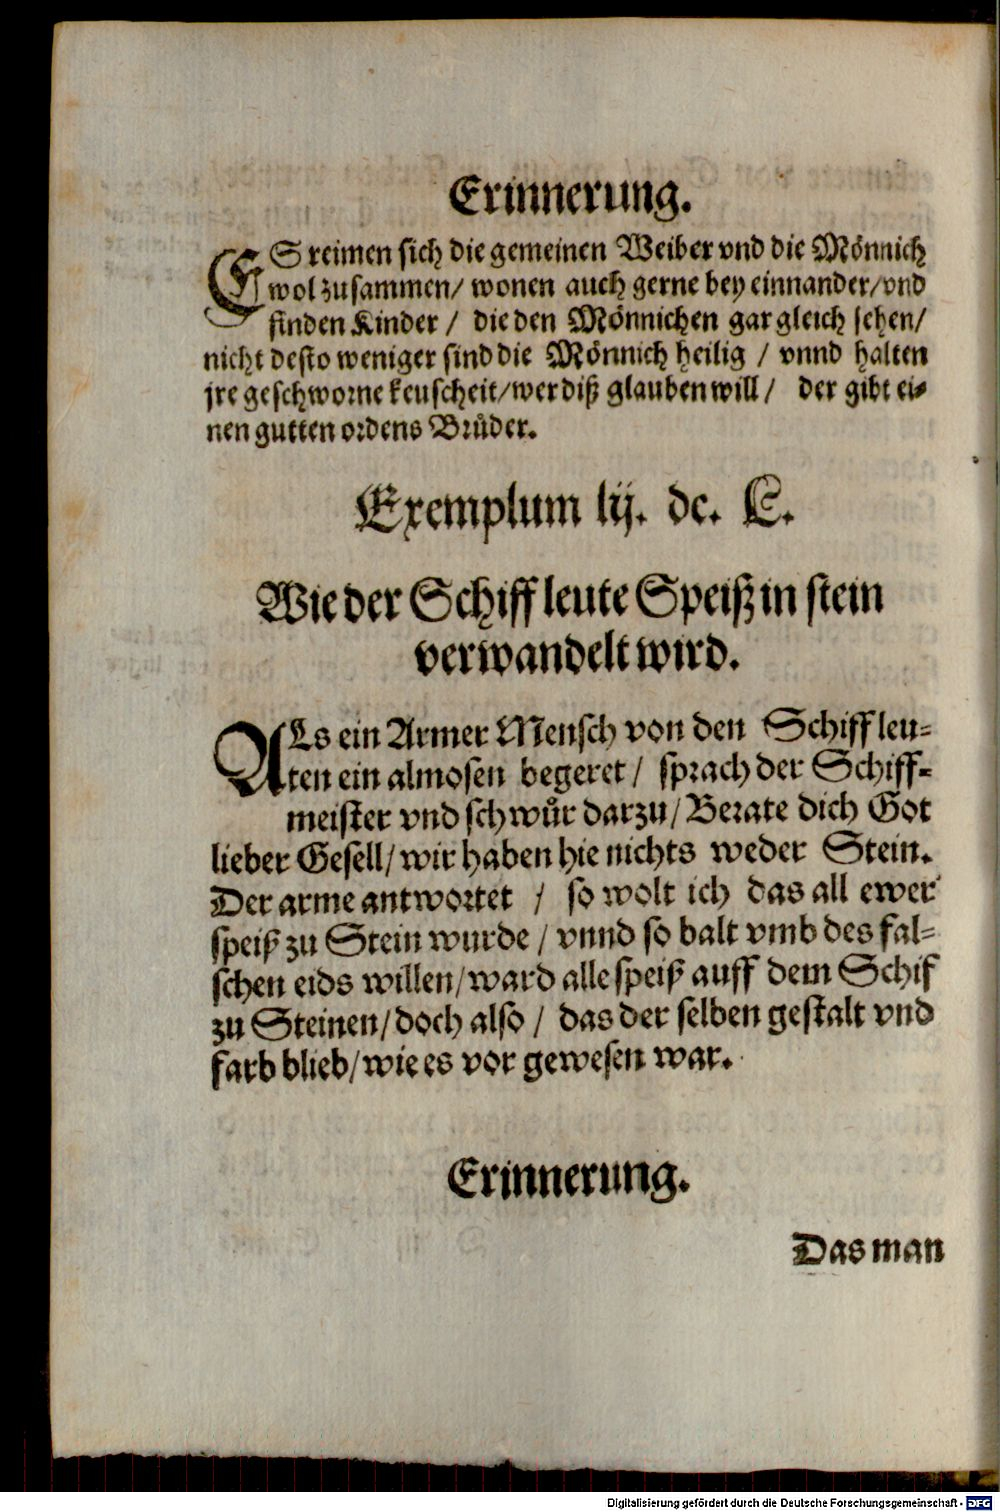 Erinnerung.
ES reimen sich die gemeinen Weiber vnd die Mönnich
wol zusammen/ wonen auch gerne bey einnander/vnd
finden Kinder / die den Mönnichen gar gleich sehen/
nicht desto weniger sind die Mönnich heilig / vnnd halten
jre geschworne keuscheit/wer diß glauben will / der gibt ei-
nen gutten ordens Brůder.
Exemplum lij. dc. C.
Wie der Schiffleute Speiß in stein
verwandelt wird.
ALs ein Armer Mensch von den Schiffleu-
ten ein almosen begeret / sprach der Schiff-
meister vnd schwůr darzu/ Berate dich Got
lieber Gesell/ wir haben hie nichts weder Stein.
Der arme antwortet / so wolt ich das all ewer
speiß zu Stein wurde / vnnd so balt vmb des fal-
schen eids willen/ward alle speiß auff dem Schif
zu Steinen/ doch also / das der selben gestalt vnd
farb blieb/wie es vor gewesen war.
Erinnerung.
Das man
Digitalisierung gefördert durch die Deutsche Forschungsgemeinschaft - DFG